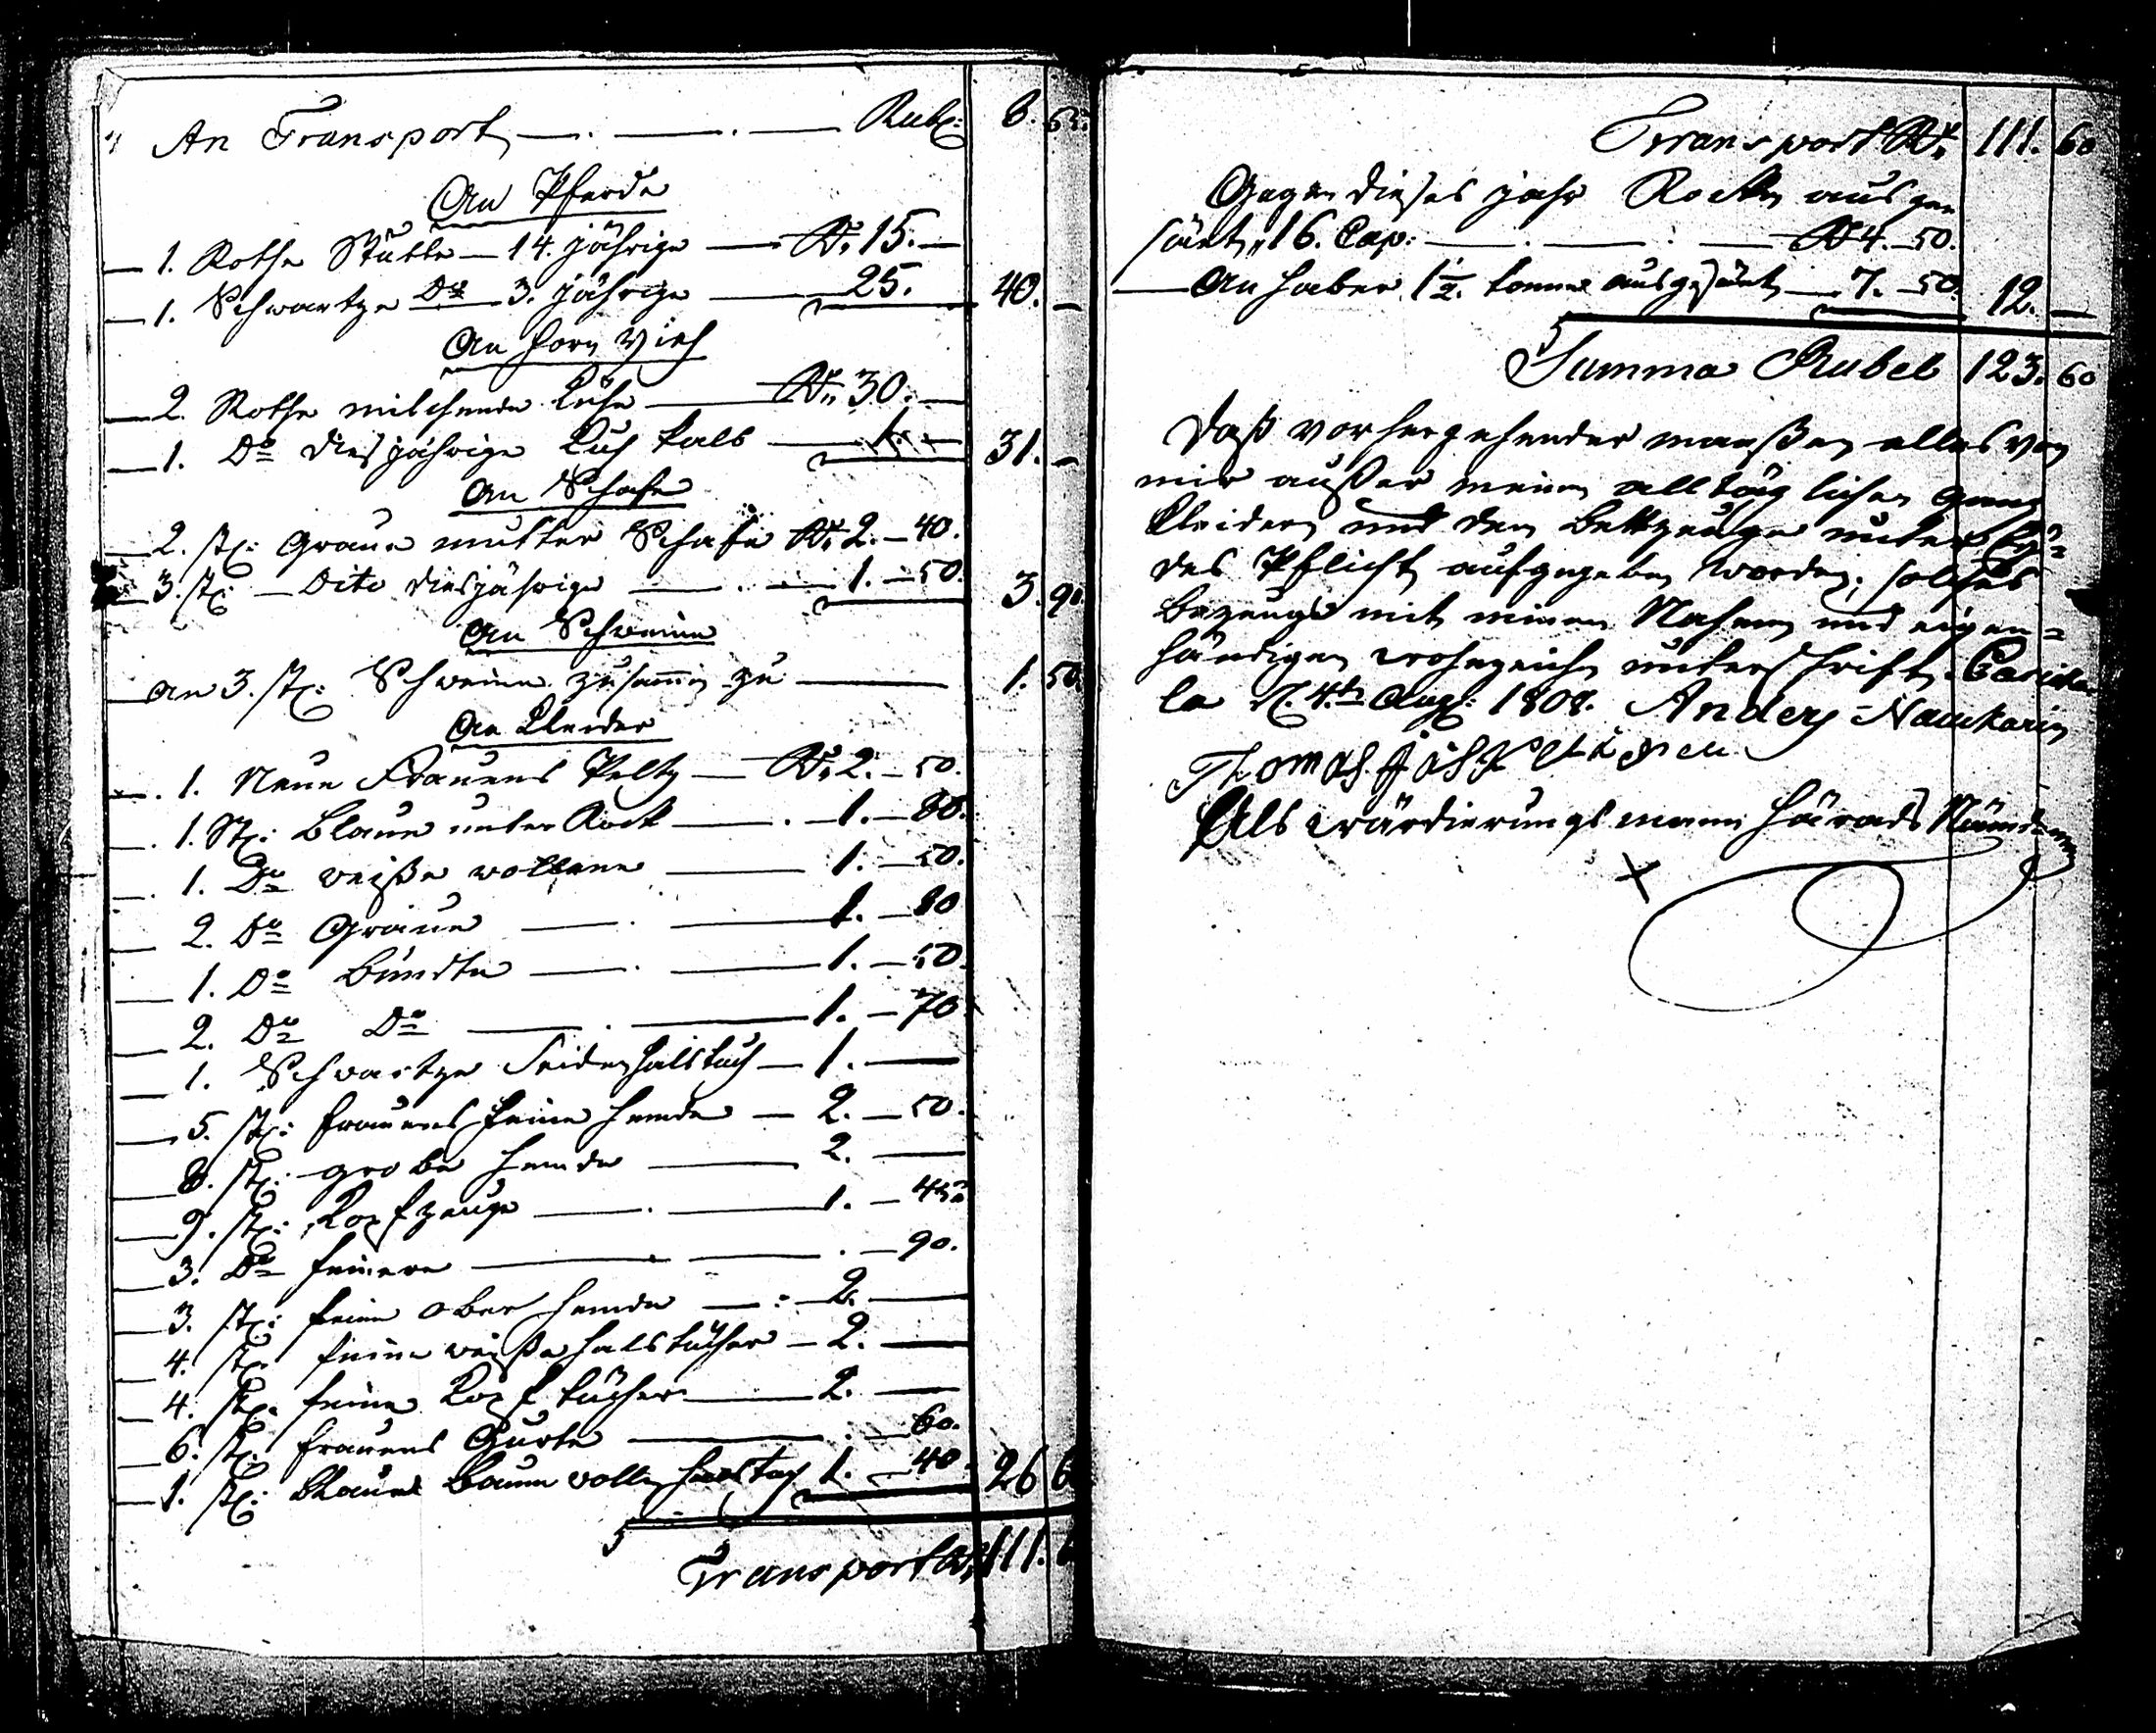 An Transport — . — . — Rubl: 8. 65.
An Pferde
1. Rothe Stutte — 14. jährige — Rl. 15. —
1. Schwartze Do 3. jährige — 25. 40. —
An Horn Vieh
2. Rothe milchende Kühe — Rl. 30. —
1. Do diesjährige Kuh kalb — 1. — 31. —
An Schafe
2. st: Graue mutter Schafe Rl. 2. — 40.
3. st: — Dito diesjährige — . — 1. — 50. 3. 90
An Schweine
an 3. st: Schweine zusammen zu — 1. 50.
An Kleider
1. Neue Frauens Peltz — Rl. 2. — 50.
1. St: Blaue unter Rock — . 1. — 80.
1. Do weiße wollene — 1. — 50.
2. Do Graue — . — 1. — 80
1. Do Bundte — . — 1. — 50.
2. Do Do — . — 1. — 70
1. Schwartze Seiden halstuch — 1. —
5. st: frauens feine hemde — 2. — 50.
8. st: grobe hemde — 2. —
9. st: Kopfzeuge — . — 1. — 45
3. Do feinere — . — 90.
3. st: feine ober hemde — : — 2. —
4. st: feine weiße halstücher — 2. —
4. st: feine Kopf tücher — 2. —
6. st: frauens Gurte — . — 60.
1. st: blaues Baum wollen halstuch 1. — 40. 26 6
Transport Rl. 111. 6
Transport Rl. 111. 60
Gegen dieses jahr Rocken ausge
säet, 16. Cap: — . — : — Rl 4. — 50.
— An haber 1½. tonne ausgesäet — 7. — 50. 12. —
Summa Rubel 123. 60
Daß vorhergehender maaßen alles von
mir außer meinen alltäglichen Gang
kleidern und den Bettzeuge unter Ey=
des Pflicht aufgegeben worden, solches
bezeuge mit meinen Nahmen und eigen=
händigen wohnzeichen unterschrift.
la d. 4.ten Aug: 1808. Anders
Thomas
Als wärdierungs mann härads Nämdeman
X